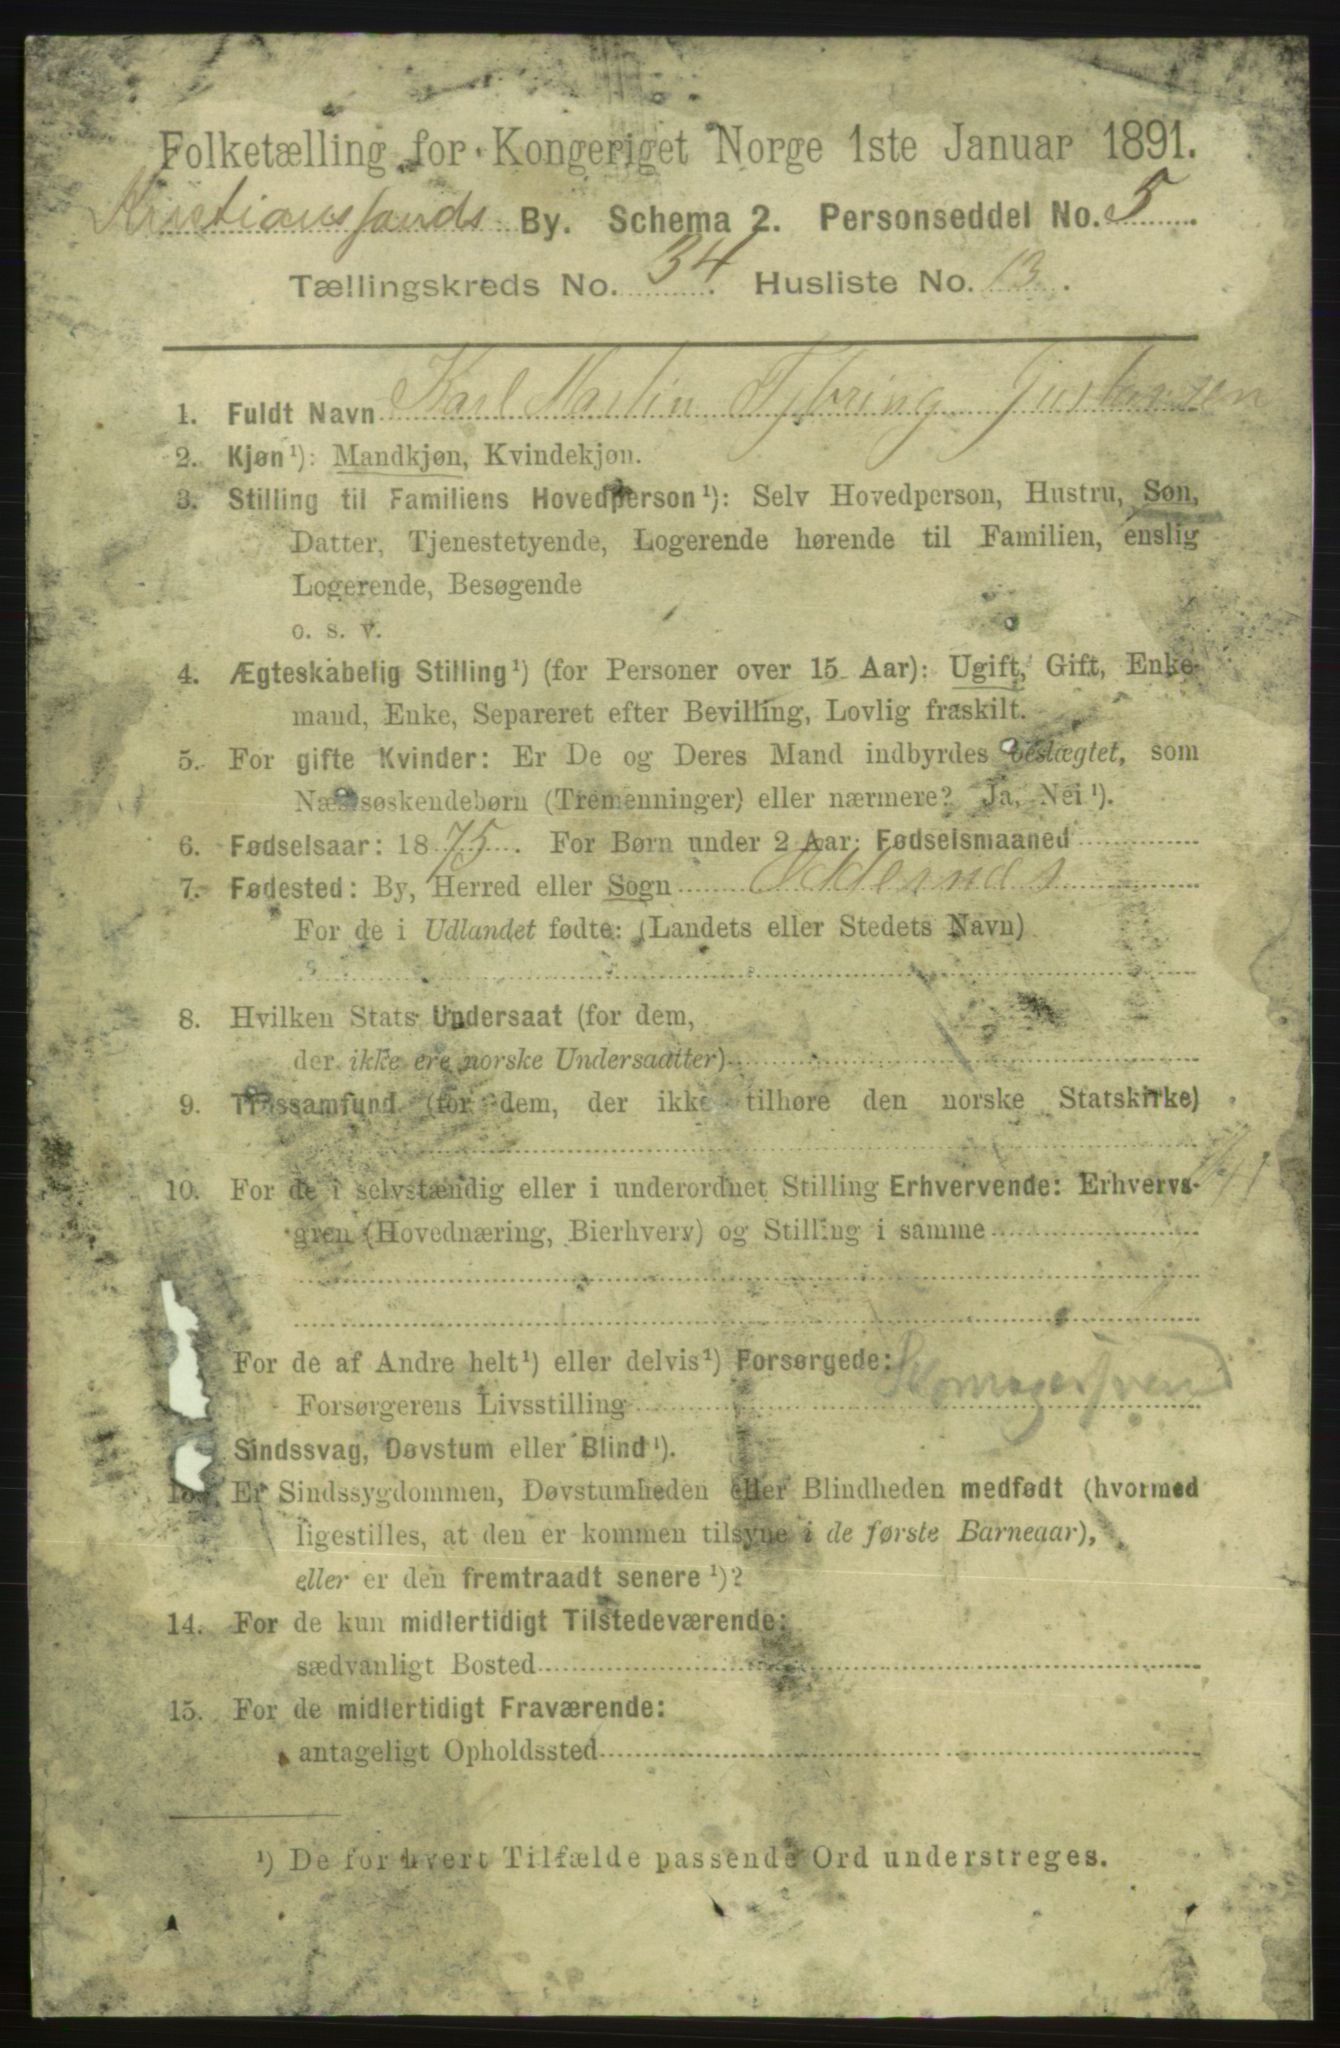 Folketælling for Kongeriget Norge 1ste Januar 1891.
Kristianssands By. Schema 2. Personseddel No. 5.
Tællingskreds No. 34. Husliste No. 13.
1. Fuldt Navn Karl Martin
2. Kjøn¹): Mandkjøn, Kvindekjøn.
3. Stilling til Familiens Hovedperson¹): Selv Hovedperson, Hustru, Søn,
Datter, Tjenestetyende, Logerende hørende til Familien, enslig
Logerende, Besøgende
o. s. v.
4. Ægteskabelig Stilling¹) (for Personer over 15 Aar): Ugift, Gift, Enke-
mand, Enke, Separeret efter Bevilling, Lovlig fraskilt.
5. For gifte Kvinder: Er De og Deres Mand indbyrdes beslægtet, som
Næstsøskendebørn (Tremenninger) eller nærmere? Ja, Nei¹).
6. Fødselsaar: 1875. For Børn under 2 Aar: Fødselsmaaned
7. Fødested: By, Herred eller Sogn Oddernes
For de i Udlandet fødte: (Landets eller Stedets Navn)
8. Hvilken Stats Undersaat (for dem,
der ikke ere norske Undersaatter)
9. Trossamfund (for dem, der ikke tilhøre den norske Statskirke)
10. For de i selvstændig eller i underordnet Stilling Erhvervende: Erhvervs-
gren (Hovednæring, Bierhverv) og Stilling i samme
For de af Andre helt¹) eller delvis¹) Forsørgede:
Forsørgerens Livsstilling Skomagersvend
Sindssvag, Døvstum eller Blind¹).
13. Er Sindssygdommen, Døvstumheden eller Blindheden medfødt (hvormed
ligestilles, at den er kommen tilsyne i de første Barneaar),
eller er den fremtraadt senere¹)?
14. For de kun midlertidigt Tilstedeværende:
sædvanligt Bosted
15. For de midlertidigt Fraværende:
antageligt Opholdssted
¹) De for hvert Tilfælde passende Ord understreges.